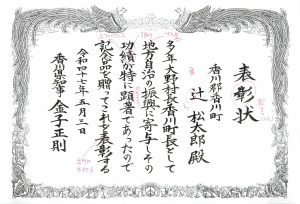 表彰状
香川郡香川町
辻松太郎殿
多年大野村長香川町長として
地方自治の振興に寄与しその
功績が特に顕著であったので
記念品を贈ってこれを表彰する
令和四十七年五月三日
香川県知事 金子正則